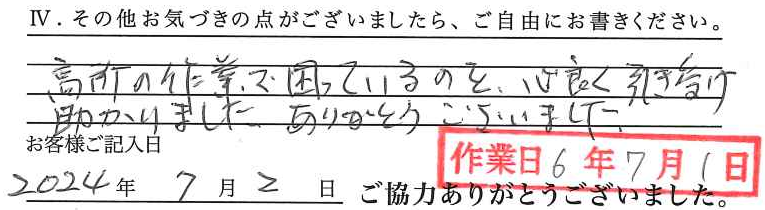 Ⅳ．その他お気づきの点がございましたら、ご自由にお書きください。
高所の作業で困っているのを、心良く引き受け
助かりました。ありがとうございました。
お客様ご記入日
作業日6年7月1日
2024年 7月2日 ご協力ありがとうございました。